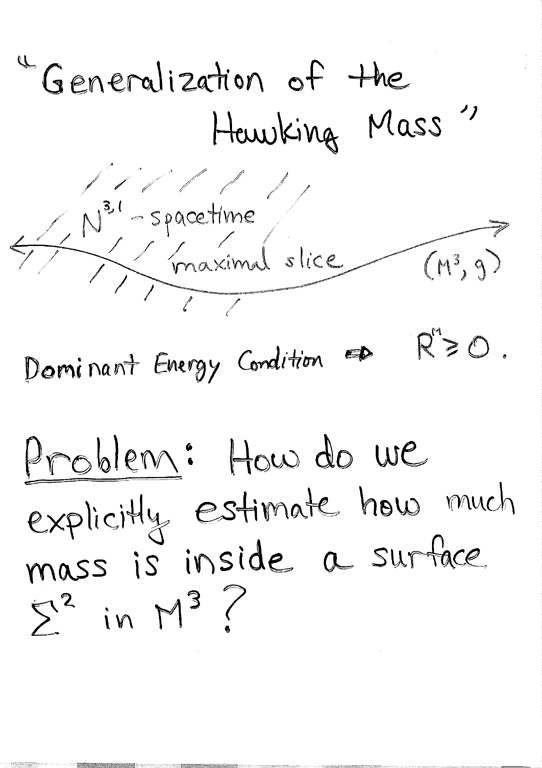 "Generalization of the
Hawking Mass"
N³,¹ - spacetime
maximal slice
(M³, g)
Dominant Energy Condition ⇒ Rᴹ ≥ 0.
Problem: How do we
explicitly estimate how much
mass is inside a surface
Σ² in M³?